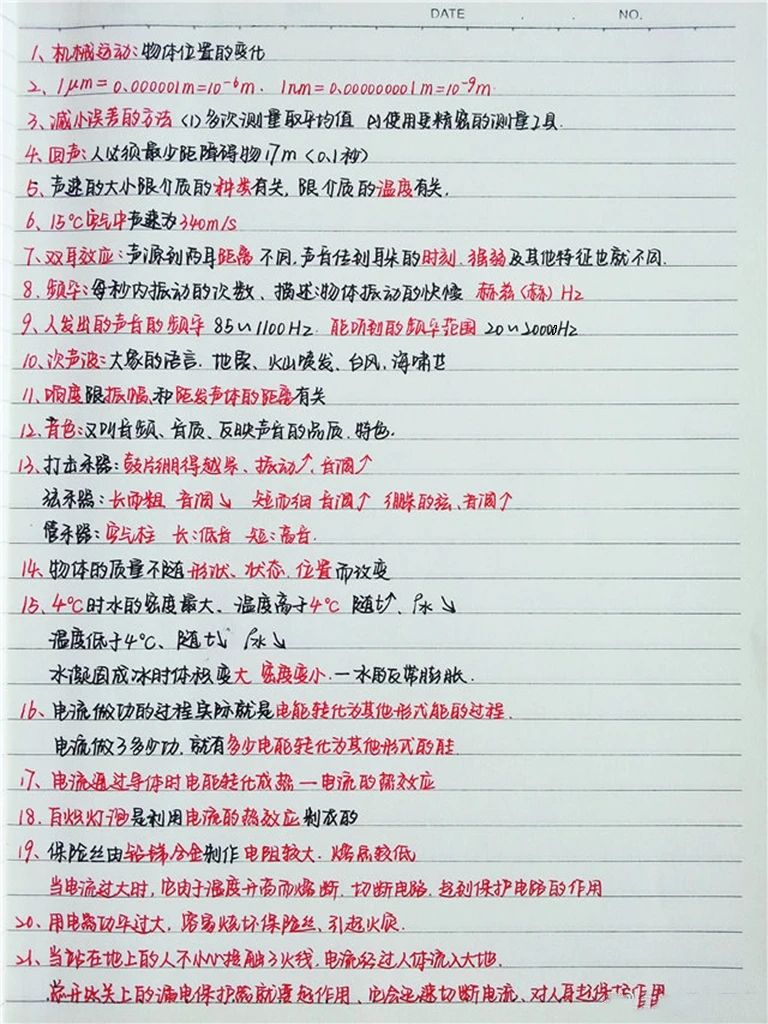 DATE . . NO.
1、机械运动:物体位置的变化
2、1μm=0.000001m=10⁻⁶m. 1nm=0.000000001m=10⁻⁹m
3、减小误差的方法 (1)多次测量取平均值 (2)使用更精密的测量工具.
4、回声:人必须最少距障碍物17m(0.1秒)
5、声速的大小跟介质的种类有关,跟介质的温度有关.
6、15℃空气中声速为340m/s
7、双耳效应:声源到两耳距离不同,声音传到耳朵的时刻、强弱及其他特征也就不同.
8、频率:每秒内振动的次数、描述物体振动的快慢 赫兹(赫)Hz
9、人发出的声音的频率 85~1100Hz. 能听到的频率范围 20~20000Hz
10、次声波:大象的语言、地震、火山喷发、台风、海啸
11、响度跟振幅和距发声体的距离有关
12、音色:又叫音频、音质、反映声音的品质、特色.
13、打击乐器:鼓皮绷得越紧、振动↑、音调↑
弦乐器:长而粗 音调↘ 短而细 音调↑ 绷紧的弦、音调↑
管乐器:空气柱 长:低音 短:高音.
14、物体的质量不随形状、状态、位置而改变
15、4℃时水的密度最大、温度高于4℃ 随t↑、ρ水↘
温度低于4℃、随t↘ ρ水↘
水凝固成冰时体积变大 密度变小.—水的反常膨胀.
16、电流做功的过程实际就是电能转化为其他形式能的过程.
电流做了多少功,就有多少电能转化为其他形式的能
17、电流通过导体时电能转化成热—电流的热效应
18、白炽灯泡是利用电流的热效应制成的
19、保险丝由铅锑合金制作 电阻较大.熔点较低
当电流过大时,它由于温度升高而熔断.切断电路.起到保护电路的作用
20、用电器功率过大,容易烧坏保险丝、引起火灾.
21、当站在地上的人不小心接触了火线,电流经过人体流入大地.
总开关上的漏电保护器就要起作用、它会迅速切断电流、对人身起保护作用